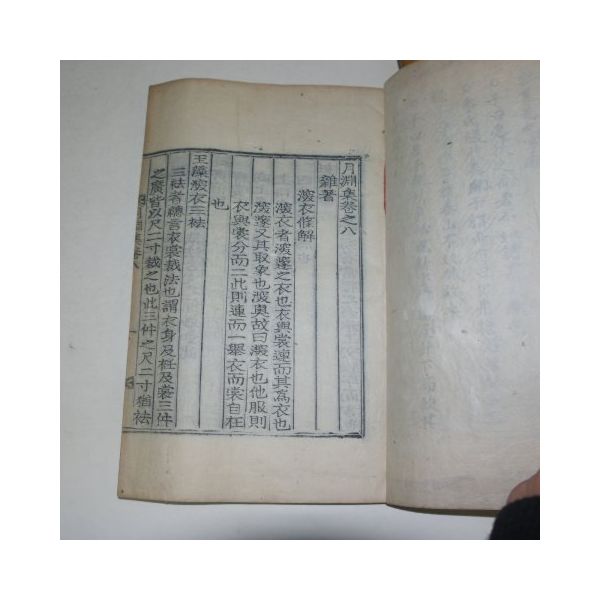 月淵集卷之八
雜著
深衣條解
深衣者深邃之衣也衣與裳連而其爲衣也
深邃又其取象也深奧故曰深衣也他服則
衣與裳分而二此則連而一舉衣而裳自在
也
玉藻深衣三袪
三袪者緫言衣裳裁法也謂衣身及衽及裳三件
之廣皆以尺二寸裁之也此三件之尺二寸猶袪